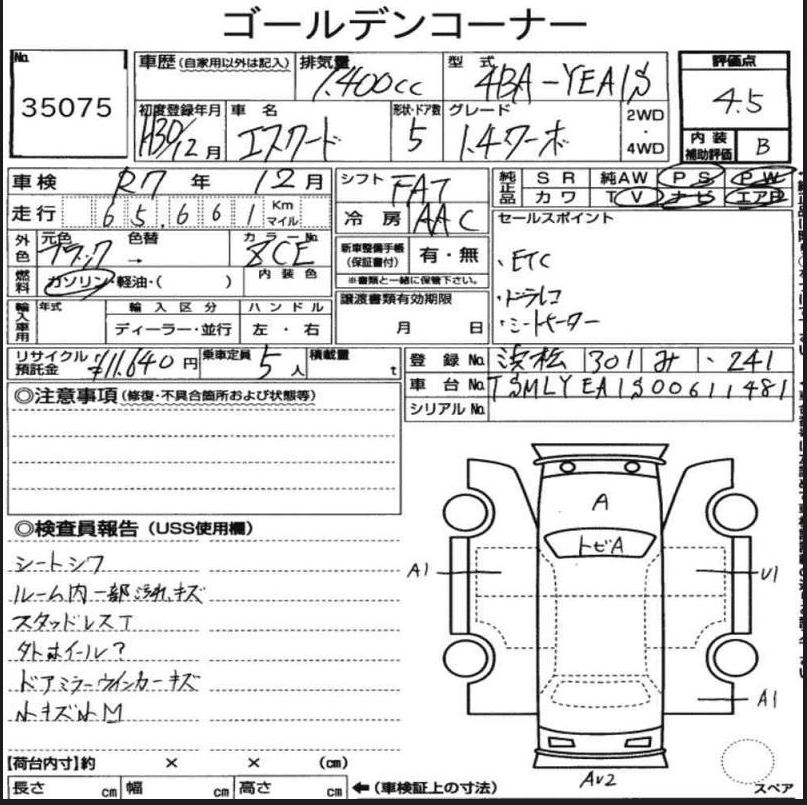 ゴールデンコーナー
No. 35075
車歴 (自家用以外は記入) 排気量 1.400cc 型式 4BA-YEA1S 評価点 4.5
初度登録年月 H30/12月 車名 エスクード 形状・ドア数 5 グレード 1.4ターボ 2WD・4WD 内装補助評価 B
車検 R7年 12月 シフト FAT 純正品 SR 純AW PS PW
走行 65,661 Km マイル 冷房 AAC カワ TV ナビ エアB
外色 元色 ブラック 色替 → カラーNo. ZCE 新車整備手帳(保証書付) 有・無 セールスポイント
・ETC
・ドラレコ
・シートヒーター
燃料 ガソリン・軽油・( ) 内装色 ※書類と一緒に保管下さい。
輸入車用 年式 輸入区分 ハンドル 譲渡書類有効期限
ディーラー・並行 左・右 月 日
リサイクル預託金 ¥11,640円 乗車定員 5人 積載量 t 登録No. 浜松 301 み ・241
車台No. TSMLYEA1S00611481
シリアルNo.
◎注意事項(修復・不具合箇所および状態等)
◎検査員報告(USS使用欄)
シートシワ
ルーム内一部汚れ、キズ
スタッドレスT
外ホイール?
ドアミラーウインカーキズ
小キズ小M
A
トビA
A1 U1
A1
AU2
【荷台内寸】約 × × (cm)
長さ cm 幅 cm 高さ cm ←(車検証上の寸法) スペア